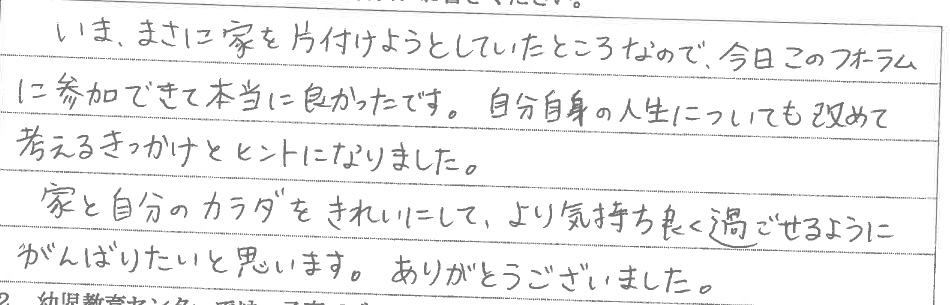 いま、まさに家を片付けようとしていたところなので、今日このフォーラム
に参加できて本当に良かったです。自分自身の人生についても改めて
考えるきっかけとヒントになりました。
家と自分のカラダをきれいにして、より気持ち良く過ごせるように
がんばりたいと思います。ありがとうございました。